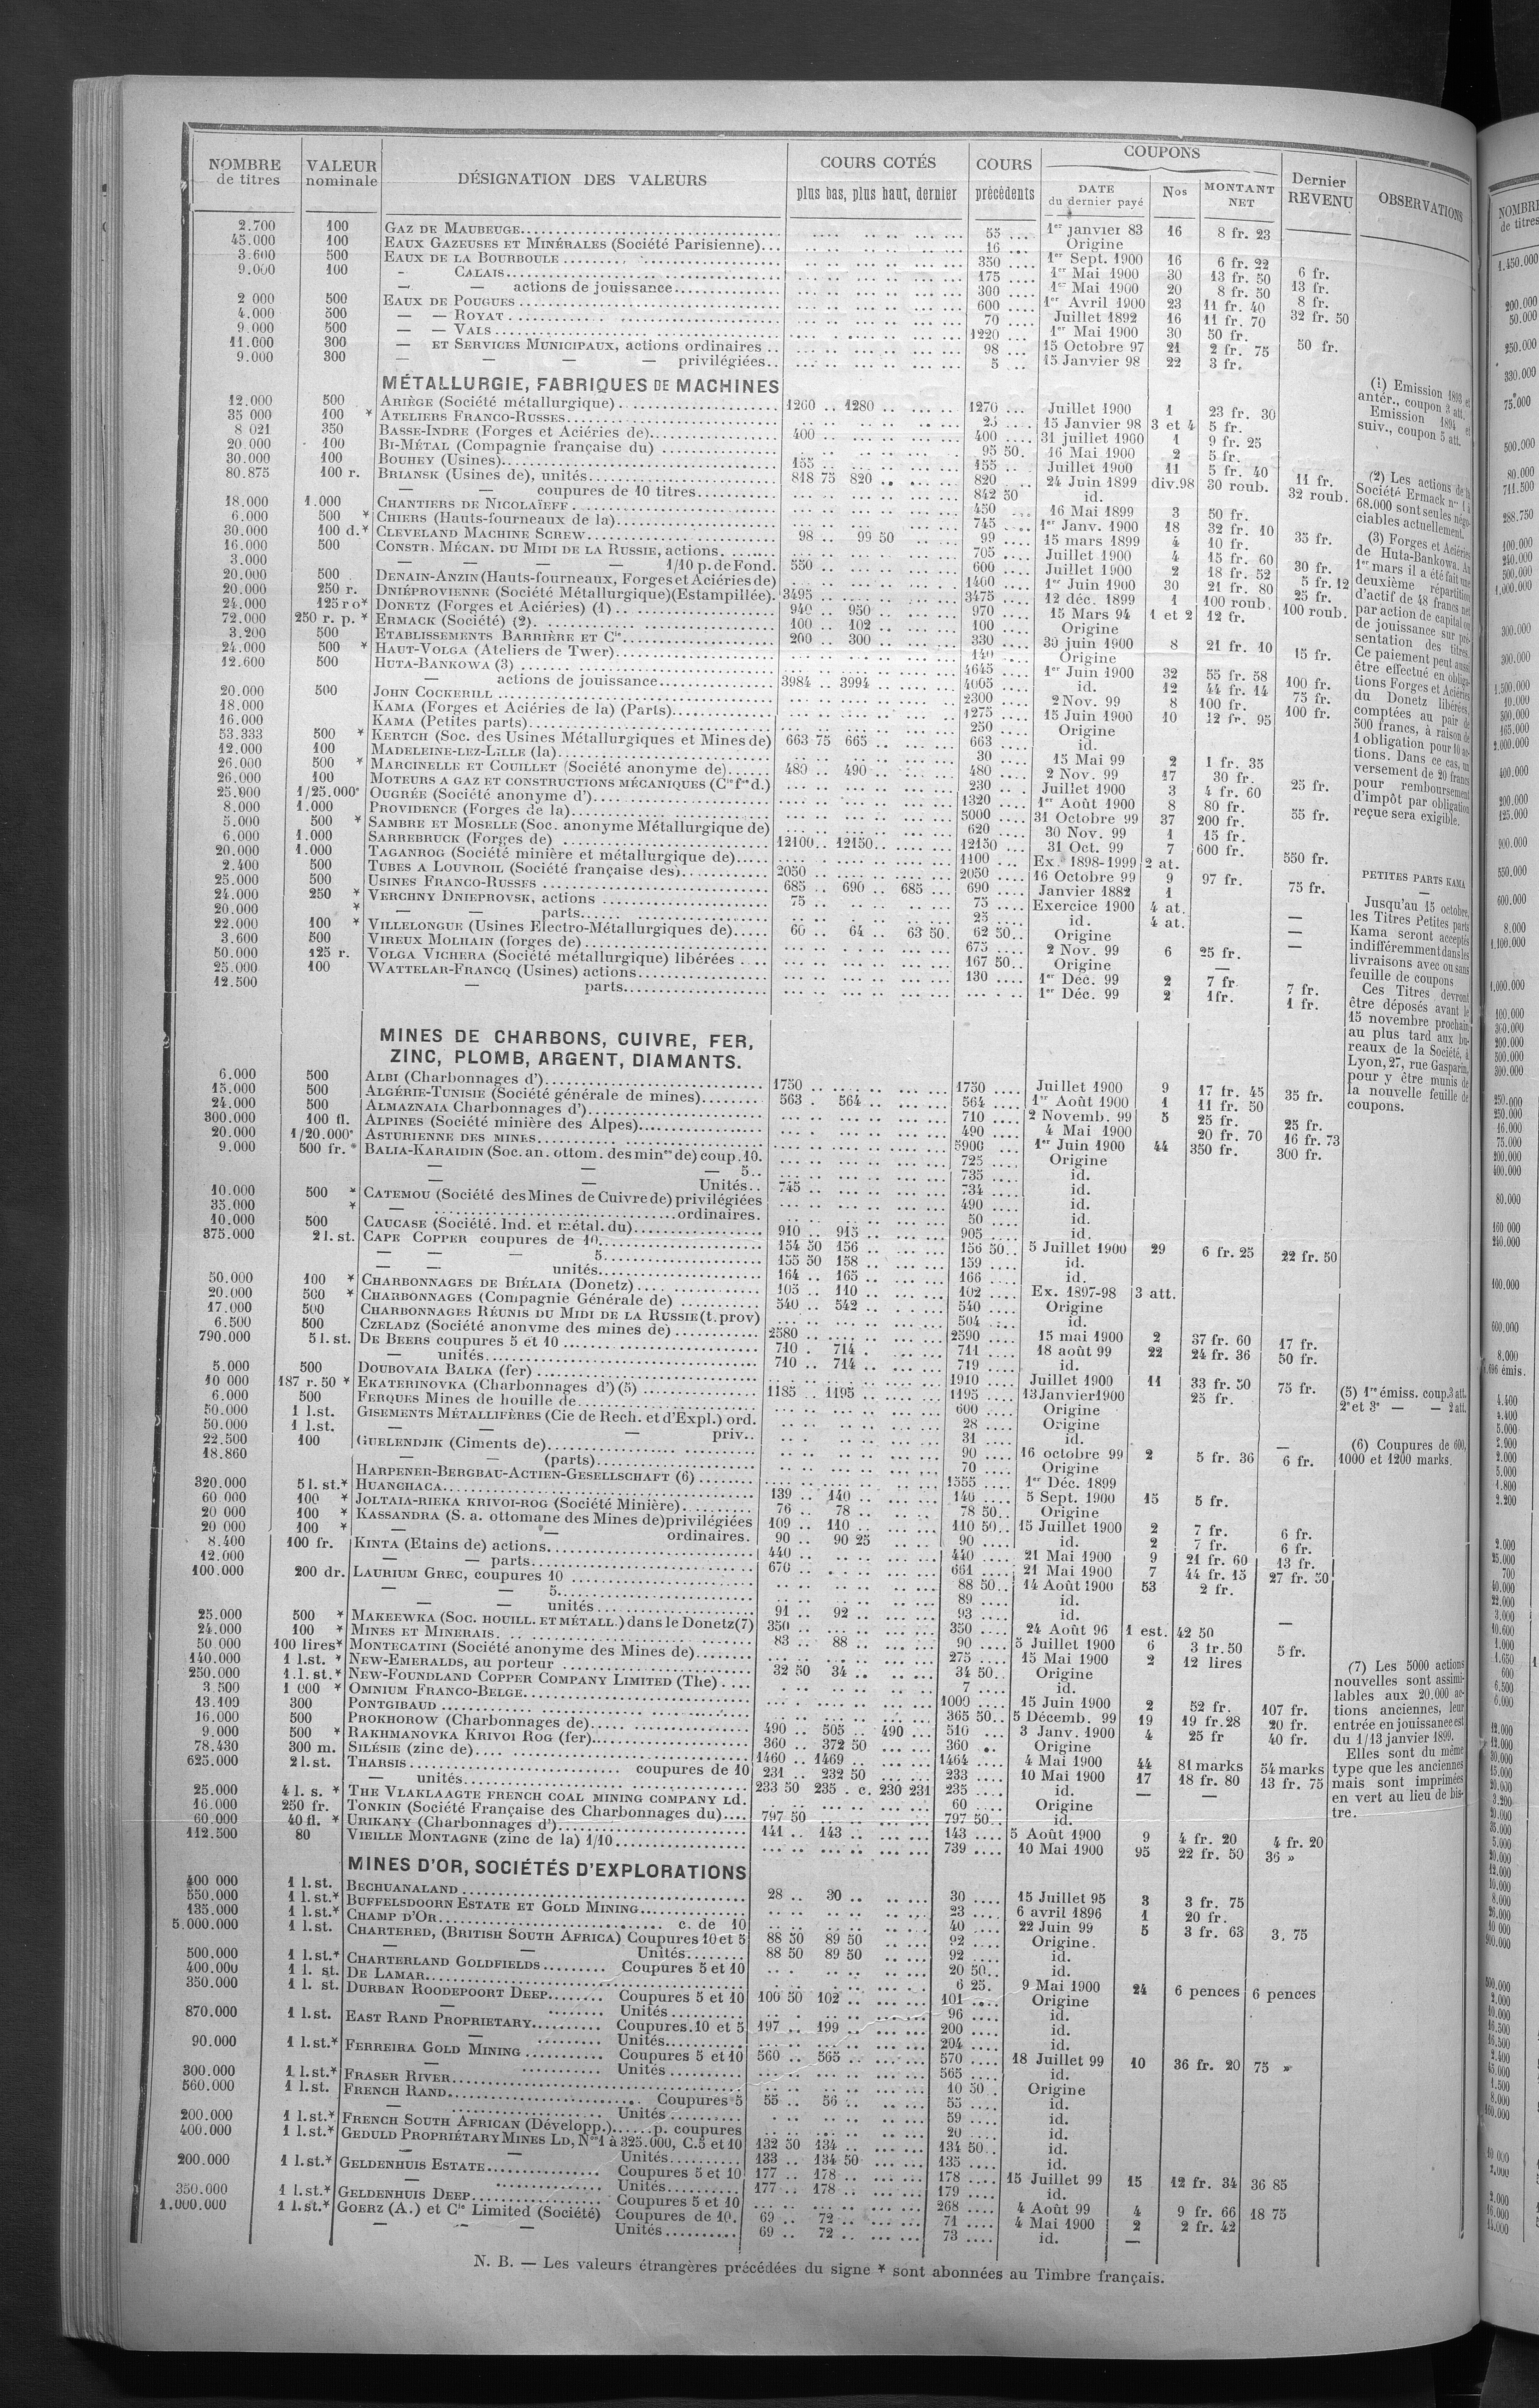 NOMBRE de titres | VALEUR nominale | DÉSIGNATION DES VALEURS | COURS COTÉS plus bas, plus haut, dernier | COURS précédents | COUPONS DATE du dernier payé | Nos | MONTANT NET | Dernier REVENU | OBSERVATIONS
2.700 100 GAZ DE MAUBEUGE 55 1er janvier 83 16 8 fr. 23
45.000 100 EAUX GAZEUSES ET MINÉRALES (Société Parisienne) 16 Origine
3.600 500 EAUX DE LA BOURBOULE 350 1er Sept. 1900 16 6 fr. 22 6 fr.
9.000 100 - CALAIS 175 1er Mai 1900 30 13 fr. 50 13 fr.
- — actions de jouissance 300 1er Mai 1900 20 8 fr. 50 8 fr.
2 000 500 EAUX DE POUGUES 600 1er Avril 1900 23 11 fr. 40 32 fr. 50
4.000 500 — — ROYAT 70 Juillet 1892 16 11 fr. 70
9.000 500 — — VALS 1220 1er Mai 1900 30 50 fr. 50 fr.
11.000 300 — ET SERVICES MUNICIPAUX, actions ordinaires 98 15 Octobre 97 21 2 fr. 75
9.000 300 — — — — privilégiées 5 15 Janvier 98 22 3 fr.
MÉTALLURGIE, FABRIQUES DE MACHINES
12.000 500 ARIÈGE (Société métallurgique) 1260 1280 1270 Juillet 1900 1 23 fr. 30
35 000 100 * ATELIERS FRANCO-RUSSES 25 15 Janvier 98 3 et 4 5 fr.
8 021 350 BASSE-INDRE (Forges et Aciéries de) 400 400 31 juillet 1900 1 9 fr. 25
20.000 100 BI-MÉTAL (Compagnie française du) 95 50 16 Mai 1900 2 5 fr.
30.000 100 BOUHEY (Usines) 155 155 Juillet 1900 11 5 fr. 40 11 fr.
80.875 100 r. BRIANSK (Usines de), unités 818 75 820 820 24 Juin 1899 div.98 30 roub. 32 roub.
— — coupures de 10 titres 842 50 id.
18.000 1.000 CHANTIERS DE NICOLAÏEFF 450 16 Mai 1899 3 50 fr.
6.000 500 * CHIERS (Hauts-fourneaux de la) 745 1er Janv. 1900 18 32 fr. 10 35 fr.
30.000 100 d.* CLEVELAND MACHINE SCREW 98 99 50 99 15 mars 1899 4 10 fr.
16.000 500 CONSTR. MÉCAN. DU MIDI DE LA RUSSIE, actions 705 Juillet 1900 4 15 fr. 60 30 fr.
3.000 — — — — 1/10 p. de Fond. 550 600 Juillet 1900 2 18 fr. 52 5 fr. 12
20.000 500 DENAIN-ANZIN (Hauts-fourneaux, Forges et Aciéries de) 1460 1er Juin 1900 30 21 fr. 80 25 fr.
20.000 250 r. DNIÉPROVIENNE (Société Métallurgique)(Estampillée) 3495 3475 12 déc. 1899 1 100 roub. 100 roub.
24.000 125 r o* DONETZ (Forges et Aciéries) (1) 940 950 970 15 Mars 94 1 et 2 12 fr.
72.000 250 r. p. * ERMACK (Société) (2) 100 102 100 Origine
3.200 500 ETABLISSEMENTS BARRIÈRE ET Cie 200 300 330 30 juin 1900 8 21 fr. 10 15 fr.
24.000 500 * HAUT-VOLGA (Ateliers de Twer) 140 Origine
12.600 500 HUTA-BANKOWA (3) 4645 1er Juin 1900 32 55 fr. 58 100 fr.
— actions de jouissance 3984 3994 4005 id. 12 44 fr. 14 75 fr.
20.000 500 JOHN COCKERILL 2300 2 Nov. 99 8 100 fr. 100 fr.
18.000 KAMA (Forges et Aciéries de la) (Parts) 1275 15 Juin 1900 10 12 fr. 95
16.000 KAMA (Petites parts) 250 Origine
53.333 500 * KERTCH (Soc. des Usines Métallurgiques et Mines de) 663 75 665 663 id.
12.000 100 MADELEINE-LEZ-LILLE (la) 30 15 Mai 99 2 1 fr. 35
26.000 500 * MARCINELLE ET COUILLET (Société anonyme de) 480 490 480 2 Nov. 99 17 30 fr. 25 fr.
26.000 100 MOTEURS A GAZ ET CONSTRUCTIONS MÉCANIQUES (Cie fse d.) 230 Juillet 1900 3 4 fr. 60
25.900 1/25.000e OUGRÉE (Société anonyme d') 1320 1er Août 1900 8 80 fr. 55 fr.
8.000 1.000 PROVIDENCE (Forges de la) 5000 31 Octobre 99 37 200 fr.
5.000 500 * SAMBRE ET MOSELLE (Soc. anonyme Métallurgique de) 620 30 Nov. 99 1 15 fr.
6.000 1.000 SARREBRUCK (Forges de) 12100 12150 12150 31 Oct. 99 7 600 fr. 550 fr.
20.000 1.000 TAGANROG (Société minière et métallurgique de) 1100 Ex. 1898-1999 2 at.
2.400 500 TUBES A LOUVROIL (Société française des) 2050 2050 16 Octobre 99 9 97 fr. 75 fr.
25.000 500 USINES FRANCO-RUSSES 685 690 685 690 Janvier 1882 1
24.000 250 * VERCHNY DNIEPROVSK, actions 75 75 Exercice 1900 4 at. —
20.000 * — — parts 25 id. 4 at. —
22.000 100 * VILLELONGUE (Usines Electro-Métallurgiques de) 60 64 63 50 62 50 Origine —
3.600 500 VIREUX MOLHAIN (forges de) 675 2 Nov. 99 6 25 fr.
50.000 125 r. VOLGA VICHERA (Société métallurgique) libérées 167 50 Origine —
25.000 100 WATTELAR-FRANCQ (Usines) actions 130 1er Déc. 99 2 7 fr 7 fr.
12.500 — parts 1er Déc. 99 2 1fr. 1 fr.
MINES DE CHARBONS, CUIVRE, FER,
ZINC, PLOMB, ARGENT, DIAMANTS.
6.000 500 ALBI (Charbonnages d') 1750 1750 Juillet 1900 9 17 fr. 45 35 fr.
15.000 500 ALGÉRIE-TUNISIE (Société générale de mines) 563 564 564 1er Août 1900 1 11 fr. 50
24.000 500 ALMAZNAIA Charbonnages d') 710 2 Novemb. 99 5 25 fr. 25 fr.
300.000 100 fl. ALPINES (Société minière des Alpes) 490 4 Mai 1900 20 fr. 70 16 fr. 73
20.000 1/20.000e ASTURIENNE DES MINES 5900 1er Juin 1900 44 350 fr. 300 fr.
9.000 500 fr. * BALIA-KARAIDIN (Soc. an. ottom. des mines de) coup. 10. 725 Origine
— — — 5 735 id.
— — Unités 745 734 id.
10.000 500 * CATEMOU (Société des Mines de Cuivre de) privilégiées 490 id.
35.000 * — ordinaires. 50 id.
10.000 500 CAUCASE (Société. Ind. et métal. du) 910 915 905 id.
375.000 2 l. st. CAPE COPPER coupures de 10 154 50 156 156 50 5 Juillet 1900 29 6 fr. 25 22 fr. 50
— — — 5 155 50 158 159 id.
— — unités 164 165 166 id.
50.000 100 * CHARBONNAGES DE BIÉLAIA (Donetz) 105 110 102 Ex. 1897-98 3 att.
20.000 500 * CHARBONNAGES (Compagnie Générale de) 540 542 540 Origine
17.000 500 CHARBONNAGES RÉUNIS DU MIDI DE LA RUSSIE (t. prov) 504 id.
6.500 500 CZELADZ (Société anonyme des mines de) 2580 2590 15 mai 1900 2 37 fr. 60 17 fr.
790.000 5 l. st. DE BEERS coupures 5 et 10 710 714 711 18 août 99 22 24 fr. 36 50 fr.
— unités 710 714 719 id.
5.000 500 DOUBOVAIA BALKA (fer) 1910 Juillet 1900 11 33 fr. 50 75 fr.
10 000 187 r. 50 * EKATERINOVKA (Charbonnages d') (5) 1185 1195 1195 13 Janvier 1900 25 fr.
6.000 500 FERQUES Mines de houille de 600 Origine
50.000 1 l.st. GISEMENTS MÉTALLIFÈRES (Cie de Rech. et d'Expl.) ord. 28 Origine
50.000 1 l.st. — — priv. 31 id.
22.500 100 GUELENDJIK (Ciments de) 90 16 octobre 99 2 5 fr. 36 6 fr.
18.860 — — (parts) 70 Origine
HARPENER-BERGBAU-ACTIEN-GESELLSCHAFT (6) 1555 1er Déc. 1899
320.000 5 l. st.* HUANCHACA 139 140 140 5 Sept. 1900 15 5 fr.
60 000 100 * JOLTAIA-RIEKA KRIVOI-ROG (Société Minière) 76 78 78 50 Origine
20 000 100 * KASSANDRA (S. a. ottomane des Mines de) privilégiées 109 110 110 50 15 Juillet 1900 2 7 fr. 6 fr.
20 000 100 * — — ordinaires. 90 90 25 90 id. 2 7 fr. 6 fr.
8.400 100 fr. KINTA (Etains de) actions 440 440 21 Mai 1900 9 21 fr. 60 13 fr.
12.000 — — parts 670 661 21 Mai 1900 7 44 fr. 15 27 fr. 50
100.000 200 dr. LAURIUM GREC, coupures 10 88 50 14 Août 1900 53 2 fr.
— — 5 89 id.
— — unités 91 92 93 id.
25.000 500 * MAKEEWKA (Soc. HOUILL. ET MÉTALL.) dans le Donetz (7) 350 350 24 Août 96 1 est. 42 50 —
24.000 100 * MINES ET MINERAIS 83 88 90 5 Juillet 1900 6 3 fr. 50 5 fr.
50 000 100 lires* MONTECATINI (Société anonyme des Mines de) 275 15 Mai 1900 2 12 lires
140.000 1 l.st. * NEW-EMERALDS, au porteur 32 50 34 34 50 Origine
250.000 1.l. st.* NEW-FOUNDLAND COPPER COMPANY LIMITED (The) 7 id.
3.500 1 000 * OMNIUM FRANCO-BELGE 1000 15 Juin 1900 2 52 fr. 107 fr.
13.109 300 PONTGIBAUD 365 50 5 Décemb. 99 19 19 fr. 28 20 fr.
16.000 500 PROKHOROW (Charbonnages de) 490 505 490 510 3 Janv. 1900 4 25 fr 40 fr.
9.000 500 * RAKHMANOVKA KRIVOI ROG (fer) 360 372 50 360 Origine
78.430 300 m. SILÉSIE (zinc de) 1460 1469 1464 4 Mai 1900 44 81 marks 54 marks
625.000 2 l.st. THARSIS coupures de 10 231 232 50 233 10 Mai 1900 17 18 fr. 80 13 fr. 75
— unités 233 50 235 . c. 230 231 235 id. — —
25.000 4 l. s. * THE VLAKLAAGTE FRENCH COAL MINING COMPANY Ld. 60 Origine
16.000 250 fr. TONKIN (Société Française des Charbonnages du) 797 50 797 50 id.
60.000 40 fl. * URIKANY (Charbonnages d') 141 143 143 5 Août 1900 9 4 fr. 20 4 fr. 20
112.500 80 VIEILLE MONTAGNE (zinc de la) 1/10 739 10 Mai 1900 95 22 fr. 50 36 »
MINES D'OR, SOCIÉTÉS D'EXPLORATIONS
400 000 1 l.st. BECHUANALAND 28 30 30 15 Juillet 95 3 3 fr. 75
550.000 1 l.st.* BUFFELSDOORN ESTATE ET GOLD MINING 23 6 avril 1896 1 20 fr.
135.000 1 l.st.* CHAMP D'OR c. de 10 40 22 Juin 99 5 3 fr. 63 3, 75
5.000.000 1 l.st. CHARTERED, (BRITISH SOUTH AFRICA) Coupures 10 et 5 88 50 89 50 92 Origine.
— — Unités 88 50 89 50 92 id.
500.000 1 l.st.* CHARTERLAND GOLDFIELDS Coupures 5 et 10 20 50 id.
400.000 1 l. st. DE LAMAR 6 25 9 Mai 1900 24 6 pences 6 pences
350.000 1 l. st. DURBAN ROODEPOORT DEEP Coupures 5 et 10 100 50 102 101 Origine
— Unités 96 id.
870.000 1 l.st. EAST RAND PROPRIETARY Coupures.10 et 5 197 199 200 id.
— Unités 204 id.
90.000 1 l.st.* FERREIRA GOLD MINING Coupures 5 et 10 560 565 570 18 Juillet 99 10 36 fr. 20 75 »
— Unités 565 id.
300.000 1 l.st.* FRASER RIVER 10 50 Origine
560.000 1 l.st. FRENCH RAND Coupures 5 55 56 55 id.
— Unités 59 id.
200.000 1 l.st.* FRENCH SOUTH AFRICAN (Développ.) p. coupures 20 id.
400.000 1 l.st.* GEDULD PROPRIÉTARY MINES LD, Nos 1 à 325.000, C.5 et 10 132 50 134 134 50 id.
— — Unités 133 134 50 135 id.
200.000 1 l.st.* GELDENHUIS ESTATE Coupures 5 et 10 177 178 178 15 Juillet 99 15 12 fr. 34 36 85
— Unités 177 178 179 id.
350.000 1 l.st.* GELDENHUIS DEEP Coupures 5 et 10 268 4 Août 99 4 9 fr. 66 18 75
1.000.000 1 l.st.* GOERZ (A.) et Cie Limited (Société) Coupures de 10. 69 72 71 4 Mai 1900 2 2 fr. 42
— — — Unités 69 72 73 id. —
(1) Emission 1893 et
antér., coupon 3 att.
Emission 1894 et
suiv., coupon 5 att.
(2) Les actions de la
Société Ermack nos 1 à
68.000 sont seules négo-
ciables actuellement.
(3) Forges et Aciéries
de Huta-Bankowa. Au
1er mars il a été fait une
deuxième répartition
d'actif de 48 francs net
par action de capital ou
de jouissance sur pré-
sentation des titres.
Ce paiement peut aussi
être effectué en obliga-
tions Forges et Aciéries
du Donetz libérées,
comptées au pair de
500 francs, à raison de
1 obligation pour 10 ac-
tions. Dans ce cas, un
versement de 20 francs
pour remboursement
d'impôt par obligation
reçue sera exigible.
PETITES PARTS KAMA
—
Jusqu'au 15 octobre,
les Titres Petites parts
Kama seront acceptés
indifféremment dans les
livraisons avec ou sans
feuille de coupons
Ces Titres devront
être déposés avant le
15 novembre prochain
au plus tard aux bu-
reaux de la Société, à
Lyon, 27, rue Gasparin,
pour y être munis de
la nouvelle feuille de
coupons.
(5) 1re émiss. coup. 3 att.
2e et 3e — — 2 att.
(6) Coupures de 600,
1000 et 1200 marks.
(7) Les 5000 actions
nouvelles sont assimi-
lables aux 20.000 ac-
tions anciennes, leur
entrée en jouissance est
du 1/13 janvier 1899.
Elles sont du même
type que les anciennes
mais sont imprimées
en vert au lieu de bis-
tre.
N. B. — Les valeurs étrangères précédées du signe * sont abonnées au Timbre français.